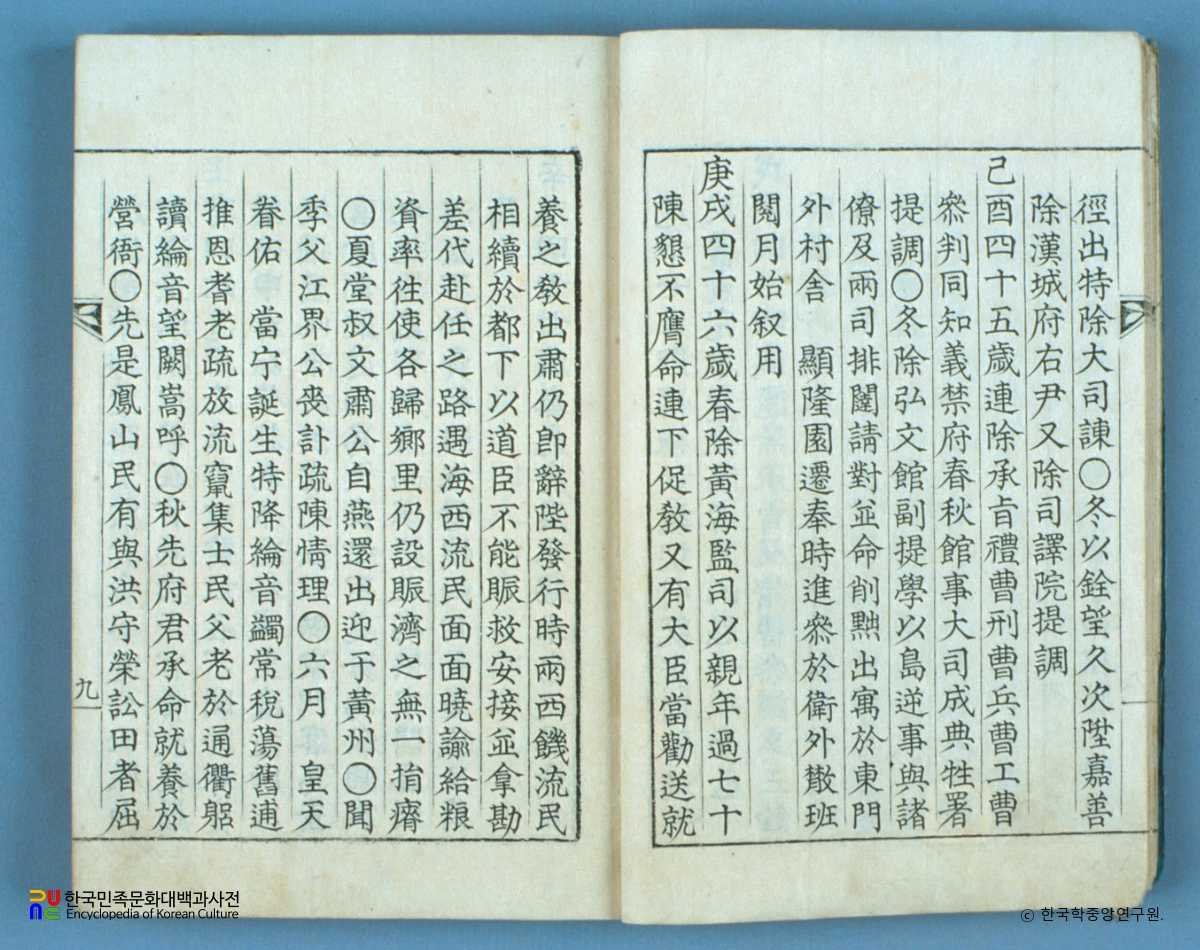 徑出特除大司諫○冬以銓望久次陞嘉善
除漢城府右尹又除司譯院提調
己酉四十五歲連除承旨禮曹刑曹兵曹工曹
叅判同知義禁府春秋館事大司成典牲署
提調○冬除弘文館副提學以島逆事與諸
僚及兩司排闥請對並命削黜出寓於東門
外村舍 顯隆園遷奉時進叅於衛外散班
閱月始叙用
庚戌四十六歲春除黃海監司以親年過七十
陳懇不膺命連下促敎又有大臣當勸送就
養之敎出肅仍卽辭陛發行時兩西饑流民
相續於都下以道臣不能賑救安接並拿勘
差代赴任之路遇海西流民面面曉諭給粮
資率徃使各歸鄉里仍設賑濟之無一捐瘠
○夏堂叔文肅公自燕還出迎于黃州○聞
季父江界公喪訃疏陳情理○六月 皇天
眷佑 當宁誕生特降綸音蠲常稅蕩舊逋
推恩耆老疏放流竄集士民父老於通衢躬
讀綸音望闕嵩呼○秋先府君承命就養於
營衙○先是鳳山民有與洪守榮訟田者屈
九
한국민족문화대백과사전
Encyclopedia of Korean Culture
ⓒ 한국학중앙연구원.